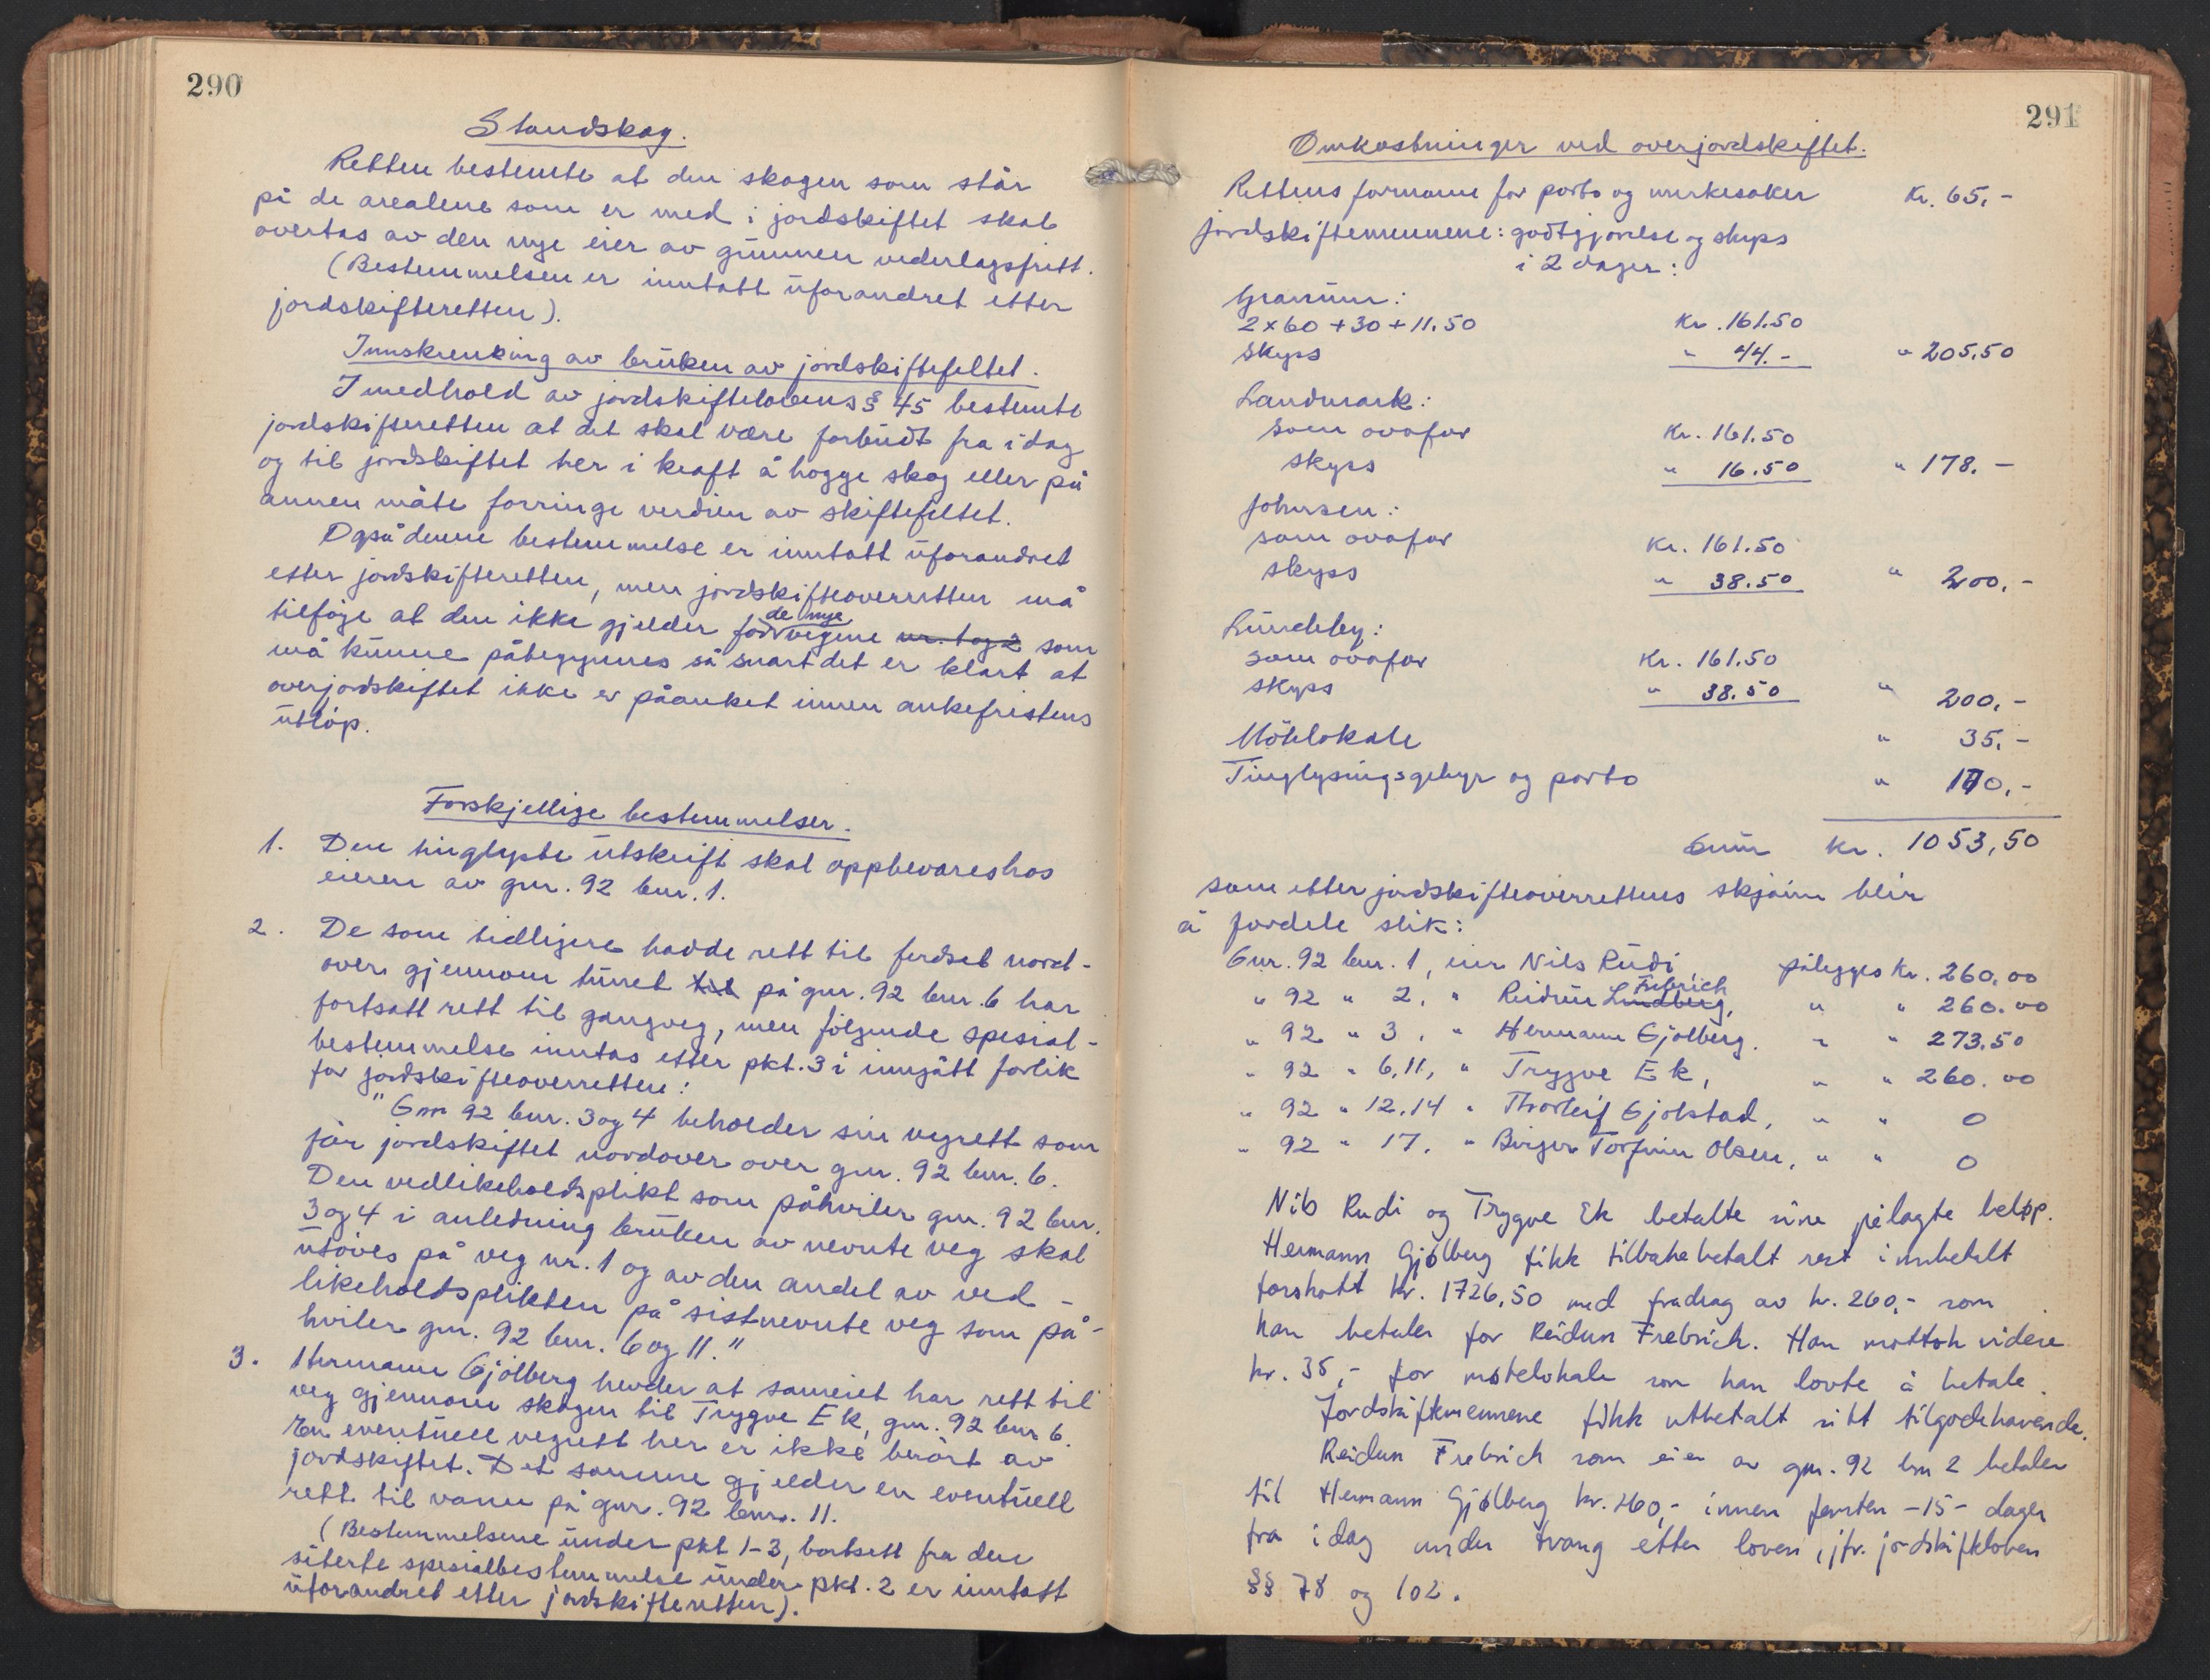 290
Standskog.
Retten bestemte at den skogen som står
på de arealene som er med i jordskiftet skal
overtas av den nye eier av grunnen vederlagsfritt.
(Bestemmelsen er inntatt uforandret etter
jordskifteretten).
Innskrenking av bruken av jordskiftefeltet.
I medhold av jordskiftelovens § 45 bestemte
jordskifteretten at det skal være forbudt fra idag
og til jordskiftet trer i kraft å hogge skog eller på
annen måte forringe verdien av skiftefeltet.
Også denne bestemmelse er inntatt uforandret
etter jordskifteretten, men jordskifteoverretten må
tilføje at den ikke gjelder for de nye vegene nr. 1 og 2 som
må kunne påbegynnes så snart det er klart at
overjordskiftet ikke er påanket innen ankefristens
utløp.
Forskjellige bestemmelser.
1. Den tinglyste utskrift skal oppbevares hos
eieren av gnr. 92 bnr. 1.
2. De som tidligere hadde rett til ferdsel nord-
over gjennom tunet til på gnr. 92 bnr. 6 har
fortsatt rett til gangveg, men følgende spesial-
bestemmelse inntas etter pkt. 3 i inngått forlik
for jordskifteoverretten:
"Gnr 92 bnr. 3 og 4 beholder sin vegrett som
før jordskiftet nordover over gnr. 92 bnr. 6.
Den vedlikeholdsplikt som påhviler gnr. 92 bnr.
3 og 4 i anledning bruken av nevnte veg skal
utøves på veg nr. 1 og av den andel av ved-
likeholdsplikten på sistnevnte veg som på-
hviler gnr. 92 bnr. 6 og 11."
3. Hermann Gjølberg hevder at sameiet har rett til
veg gjennom skogen til Trygve Ek, gnr. 92 bnr 6.
En eventuell vegrett her er ikke berørt av
jordskiftet. Det samme gjelder en eventuell
rett til vann på gnr. 92 bnr. 11.
(Bestemmelsene under pkt 1-3, bortsett fra den
siterte spesialbestemmelse under pkt. 2 er inntatt
uforandret etter jordskifteretten).
291
Omkostninger ved overjordskiftet.
Rettens formann for porto og merkesaker Kr. 65,-
Jordskiftemennene: godtgjørelse og skyss
i 2 dager:
Granum:
2 x 60 + 30 + 11.50 Kr. 161.50
Skyss " 44.- " 205,50
Landmark:
som ovafor Kr. 161.50
skyss " 16.50 " 178.-
Johnsen:
som ovafor Kr. 161.50
skyss " 38.50 " 200,-
Lundeby:
som ovafor Kr. 161.50
skyss " 38.50 " 200,-
Møtelokale " 35,-
Tinglysingsgebyr og porto " 170,-
Sum kr. 1053,50
som etter jordskifteoverrettens skjønn blir
å fordele slik:
Gnr. 92 bnr. 1, eier Nils Rudi, pålegges Kr. 260,00
" 92 " 2, " Reidun Lindberg, Frebrich " " 260.00
" 92 " 3, " Hermann Gjølberg. " " 273.50
" 92 " 6,11, " Trygve Ek, " " 260.00
" 92 " 12,14 " Thorleif Gjølstad, " " 0
" 92 " 17, " Birger Torfinn Olsen, " " 0
Nils Rudi og Trygve Ek betalte sine pålagte beløp.
Hermann Gjølberg fikk tilbakebetalt rest innbetalt
forskott kr. 1726,50 med fradrag av kr. 260,- som
han betaler for Reidun Frebrich. Han mottok videre
kr. 35,- for møtelokale som han lovte å betale.
Jordskiftemennene fikk utbetalt sitt tilgodehavende.
Reidun Frebrich som eier av gnr. 92 bnr 2 betaler
til Hermann Gjølberg kr. 260,- innen femten -15- dager
fra idag under tvang etter loven, jfr. jordskifteloven
§§ 78 og 102.